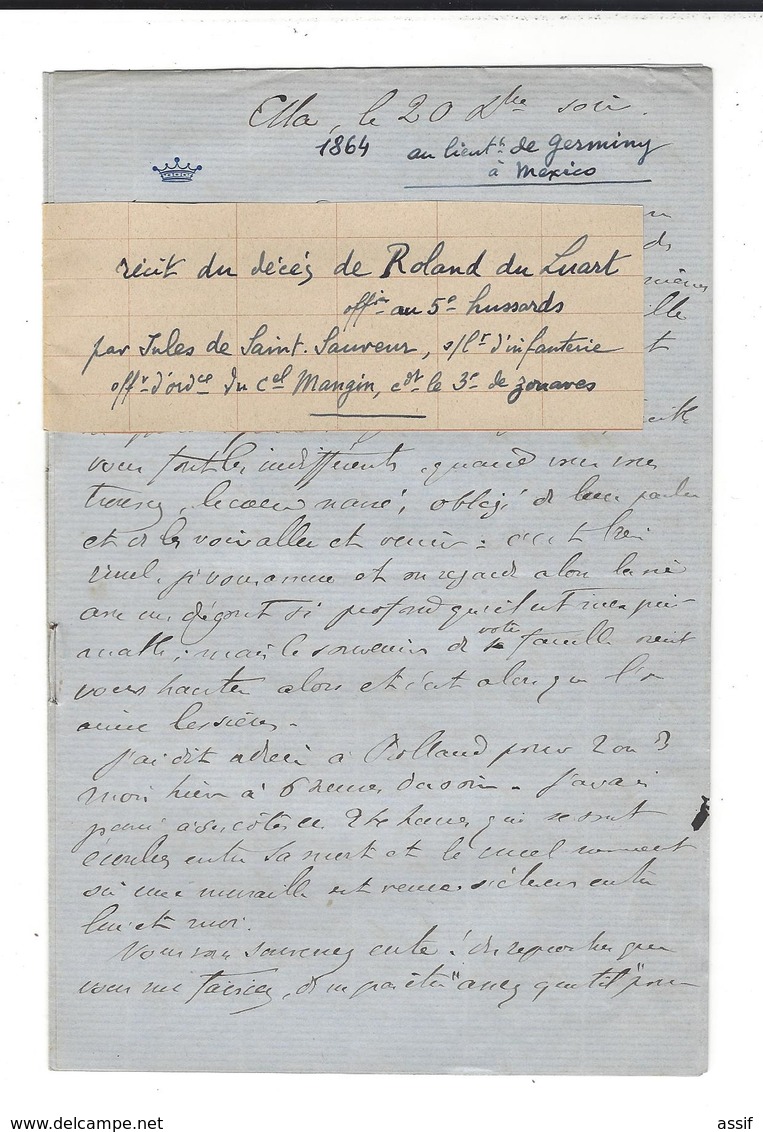 Etla, le 20 Xbre soir.
1864 au lieutt de Germiny
à Mexico
récit du décès de Roland du Luart
offier au 5e hussards
par Jules de Saint-Sauveur, s/lt d'infanterie
offr d'ordce du Cel Mangin, cdt le 3e de zouaves
ds
mières
ille
t
vous font les indifférents, quand vous vous
trouvez, le cœur navré, obligé de leur parler
et de les voir aller et venir : c'est bien
cruel, je vous assure et on regarde alors la vie
avec un dégoût si profond qu'il est inexpri-
mable ; mais le souvenir de votre famille vient
vous hanter alors et c'est alors que l'on
aime les siens.
J'ai dit adieu à Rolland pour 2 ou 3
mois hier à 6 heures du soir. J'avais
passé à ses côtés les 24 heures qui se sont
écoulées entre sa mort et le cruel moment
où une muraille est venue s'élever entre
lui et moi.
Vous vous souvenez des reproches que
vous me faisiez, de n'pas être "assez gentil" pour
assif